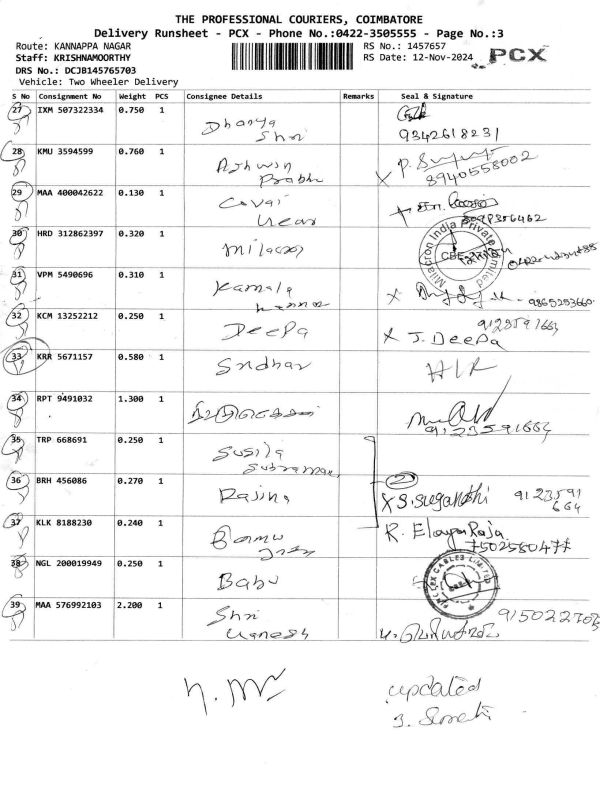 THE PROFESSIONAL COURIERS, COIMBATORE
Delivery Runsheet - PCX - Phone No.:0422-3505555 - Page No.:3
Route: KANNAPPA NAGAR
RS No.: 1457657
Staff: KRISHNAMOORTHY
RS Date: 12-Nov-2024
PCX
DRS No.: DCJB145765703
Vehicle: Two Wheeler Delivery
S No Consignment No Weight PCS Consignee Details Remarks Seal & Signature
27 IXM 507322334 0.750 1 Dhanya
Shri 9342618231
28 KMU 3594599 0.760 1 Ashwin
Prabhu 8940558002
29 MAA 400042622 0.130 1 Covai
30 HRD 312862397 0.320 1 Milacron
Milacron India Private Limited
31 VPM 5490696 0.310 1 Kamala
9865253660
32 KCM 13252212 0.250 1 DeePa 9123591664
X J. DeePa
33 KRR 5671157 0.580 1 Sridhar H/R
34 RPT 9491032 1.300 1
9123591664
35 TRP 668691 0.250 1 Susila
Subramani
36 BRH 456086 0.270 1 Rajina 2
X S. Sugandhi 9123591
664
37 KLK 8188230 0.240 1 R. Elaya Raja
7502580477
38 NGL 200019949 0.250 1 Babu
CABLES LIMITED
39 MAA 576992103 2.200 1 Shri
Ganesh
updated